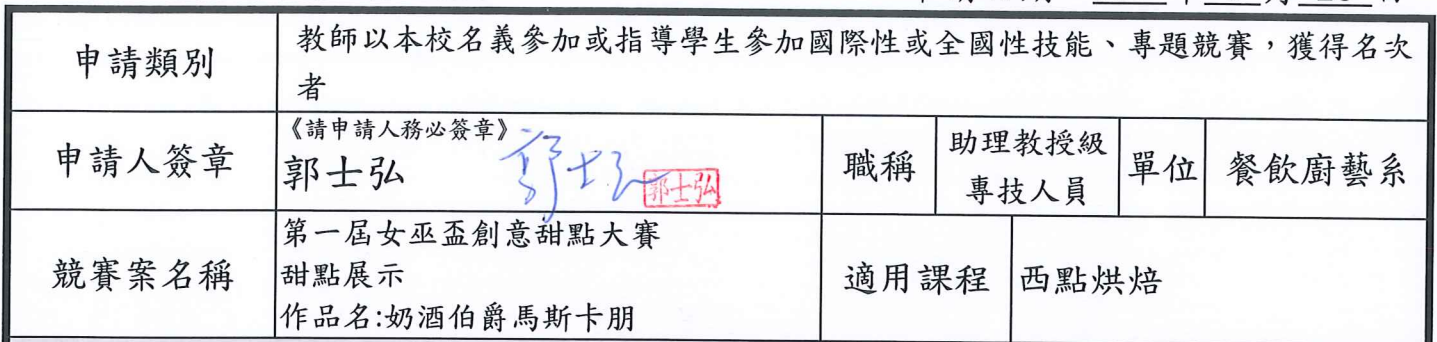 申請類別
教師以本校名義參加或指導學生參加國際性或全國性技能、專題競賽,獲得名次
者
申請人簽章
《請申請人務必簽章》
郭士弘
郭士弘
郭士弘
職稱
助理教授級
專技人員
單位
餐飲廚藝系
競賽案名稱
第一屆女巫盃創意甜點大賽
甜點展示
作品名:奶酒伯爵馬斯卡朋
適用課程
西點烘焙